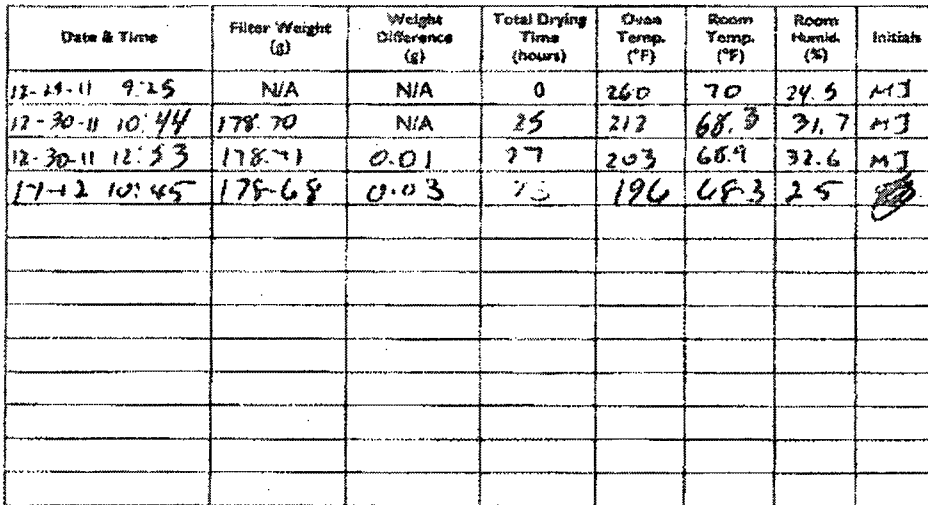 Date & Time Filter Weight (g) Weight Difference (g) Total Drying Time (hours) Oven Temp. (°F) Room Temp. (°F) Room Humid. (%) Initials
12-29-11 9:25 N/A N/A 0 260 70 24.5 MJ
12-30-11 10:44 178.70 N/A 25 212 68.3 31.7 MJ
12-30-11 12:53 178.71 0.01 27 203 68.9 32.6 MJ
10:45 178.68 0.03 196 68.3 25